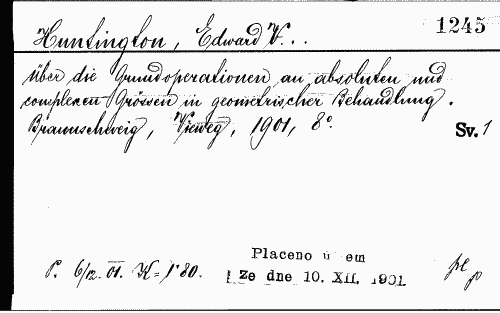 1245
Huntington, Edward V...
über die Grundoperationen an absoluten und
complexen Grössen in geometrischer Behandlung.
Braunschweig, Vieweg, 1901, 8°.
Sv. 1
P. 6/12. 01. K = 1·80.
Placeno u em
Ze dne 10. XII. 1901.